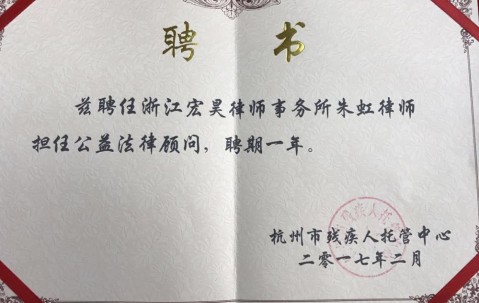 聘 书
兹聘任浙江宏昊律师事务所朱虹律师
担任公益法律顾问，聘期一年。
杭州市残疾人托管中心
二零一七年二月